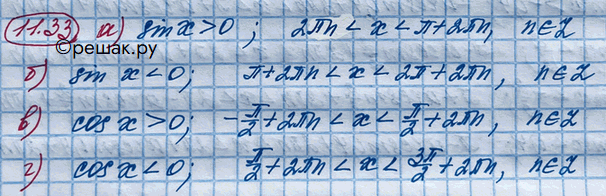 11.33 а) sin x > 0 ; 2πn < x < π + 2πn, n ∈ Z
©решак.ру
б) sin x < 0 ; π + 2πn < x < 2π + 2πn, n ∈ Z
в) cos x > 0 ; -π/2 + 2πn < x < π/2 + 2πn, n ∈ Z
г) cos x < 0 ; π/2 + 2πn < x < 3π/2 + 2πn, n ∈ Z